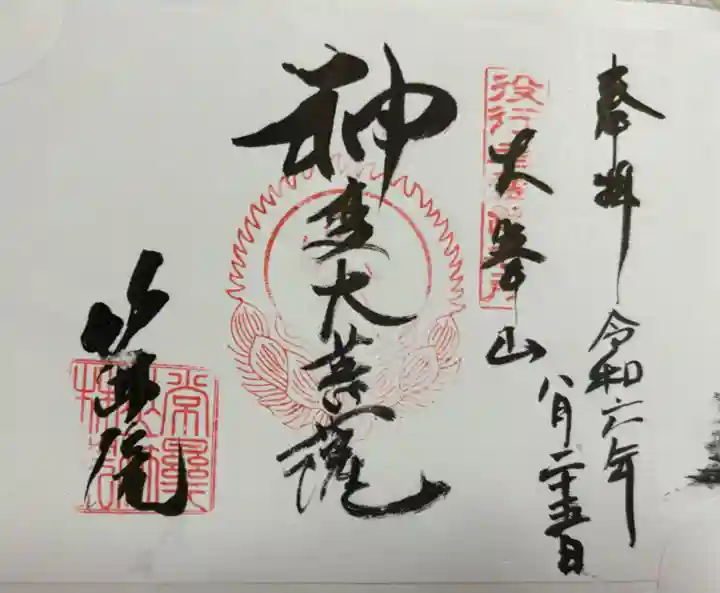 奉拝
令和六年
八月二十五日
役行者霊蹟札所
大峯山
神変大菩薩
竹林院